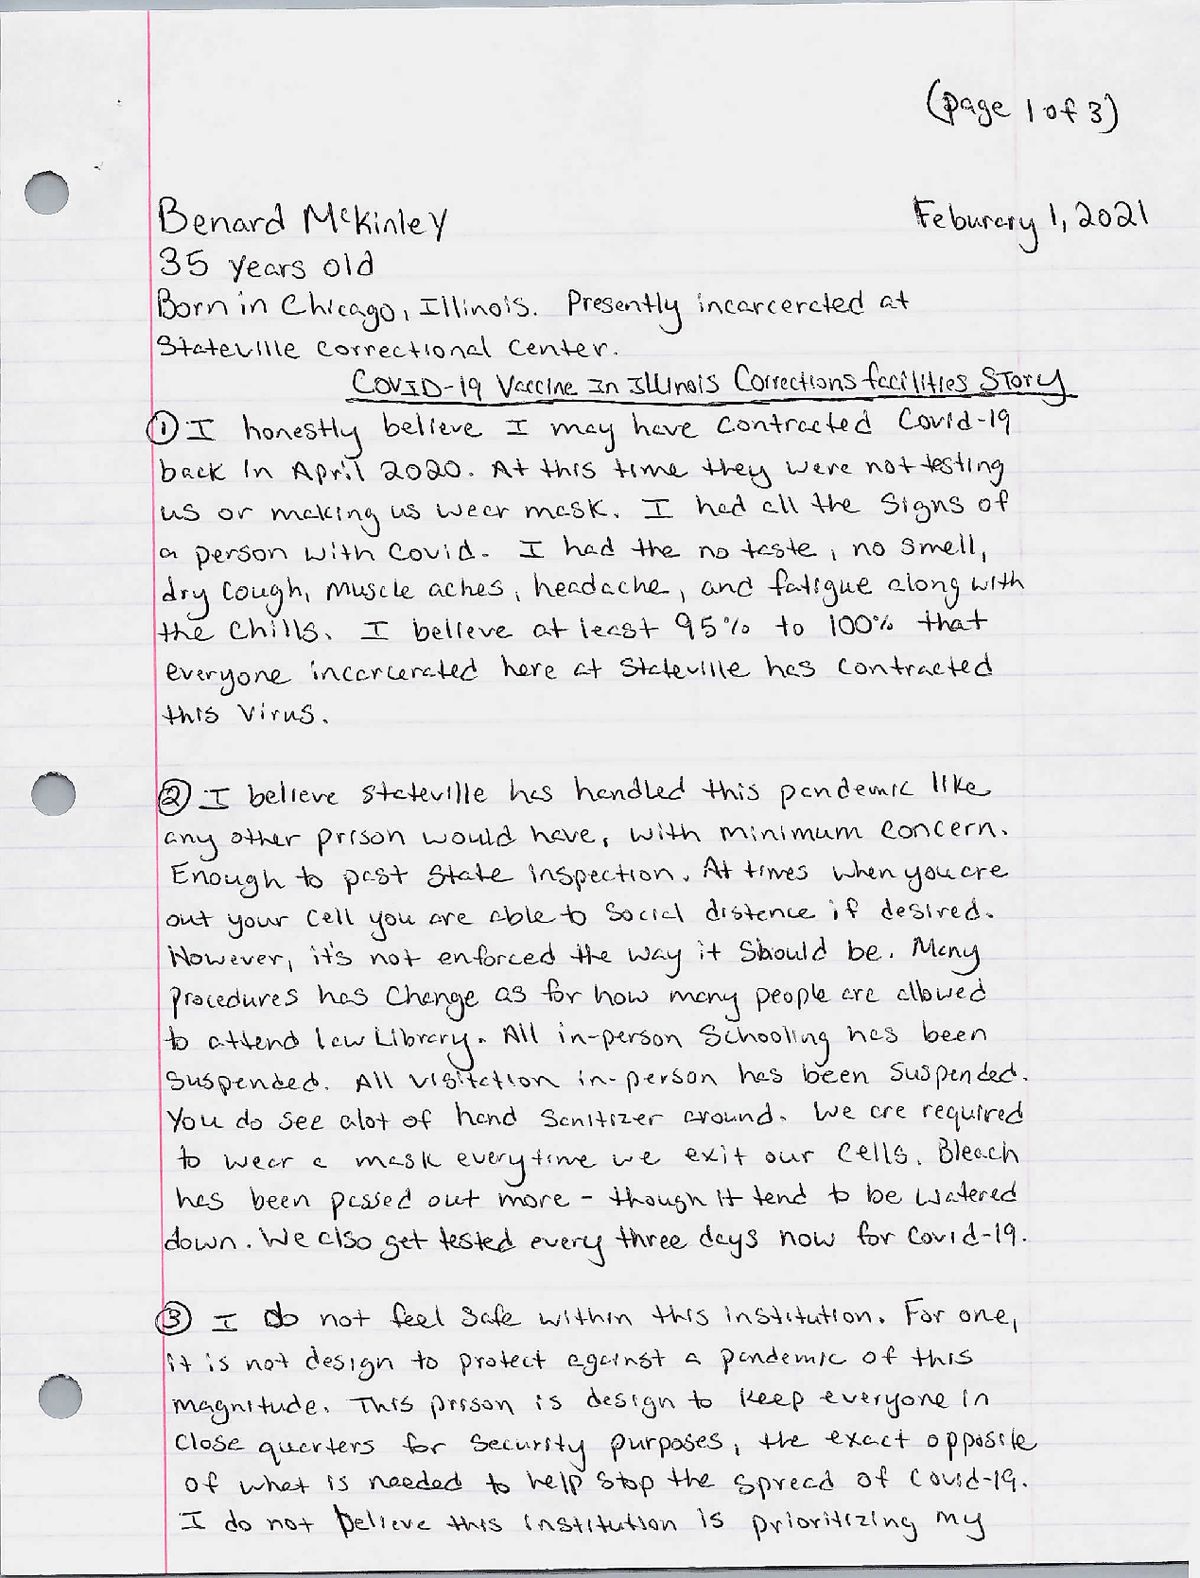 (page 1 of 3)
Benard McKinley
Feburary 1, 2021
35 years old
Born in Chicago, Illinois. Presently incarcerated at
Stateville Correctional Center.
COVID-19 Vaccine In Illinois Corrections facilities Story
① I honestly believe I may have contracted Covid-19
back in April 2020. At this time they were not testing
us or making us wear mask. I had all the signs of
a person with Covid. I had the no taste, no smell,
dry cough, muscle aches, headache, and fatigue along with
the chills. I believe at least 95% to 100% that
everyone incarcerated here at Stateville has contracted
this virus.
② I believe Stateville has handled this pandemic like
any other prison would have, with minimum concern.
Enough to past State inspection. At times when you are
out your cell you are able to social distance if desired.
However, it's not enforced the way it should be. Many
procedures has change as for how many people are allowed
to attend law Library. All in-person schooling has been
suspended. All visitation in-person has been suspended.
You do see alot of hand sanitizer around. We are required
to wear a mask everytime we exit our cells. Bleach
has been passed out more - though it tend to be watered
down. We also get tested every three days now for Covid-19.
③ I do not feel safe within this institution. For one,
it is not design to protect against a pandemic of this
magnitude. This prison is design to keep everyone in
close quarters for security purposes, the exact opposite
of what is needed to help stop the spread of Covid-19.
I do not believe this institution is prioritizing my